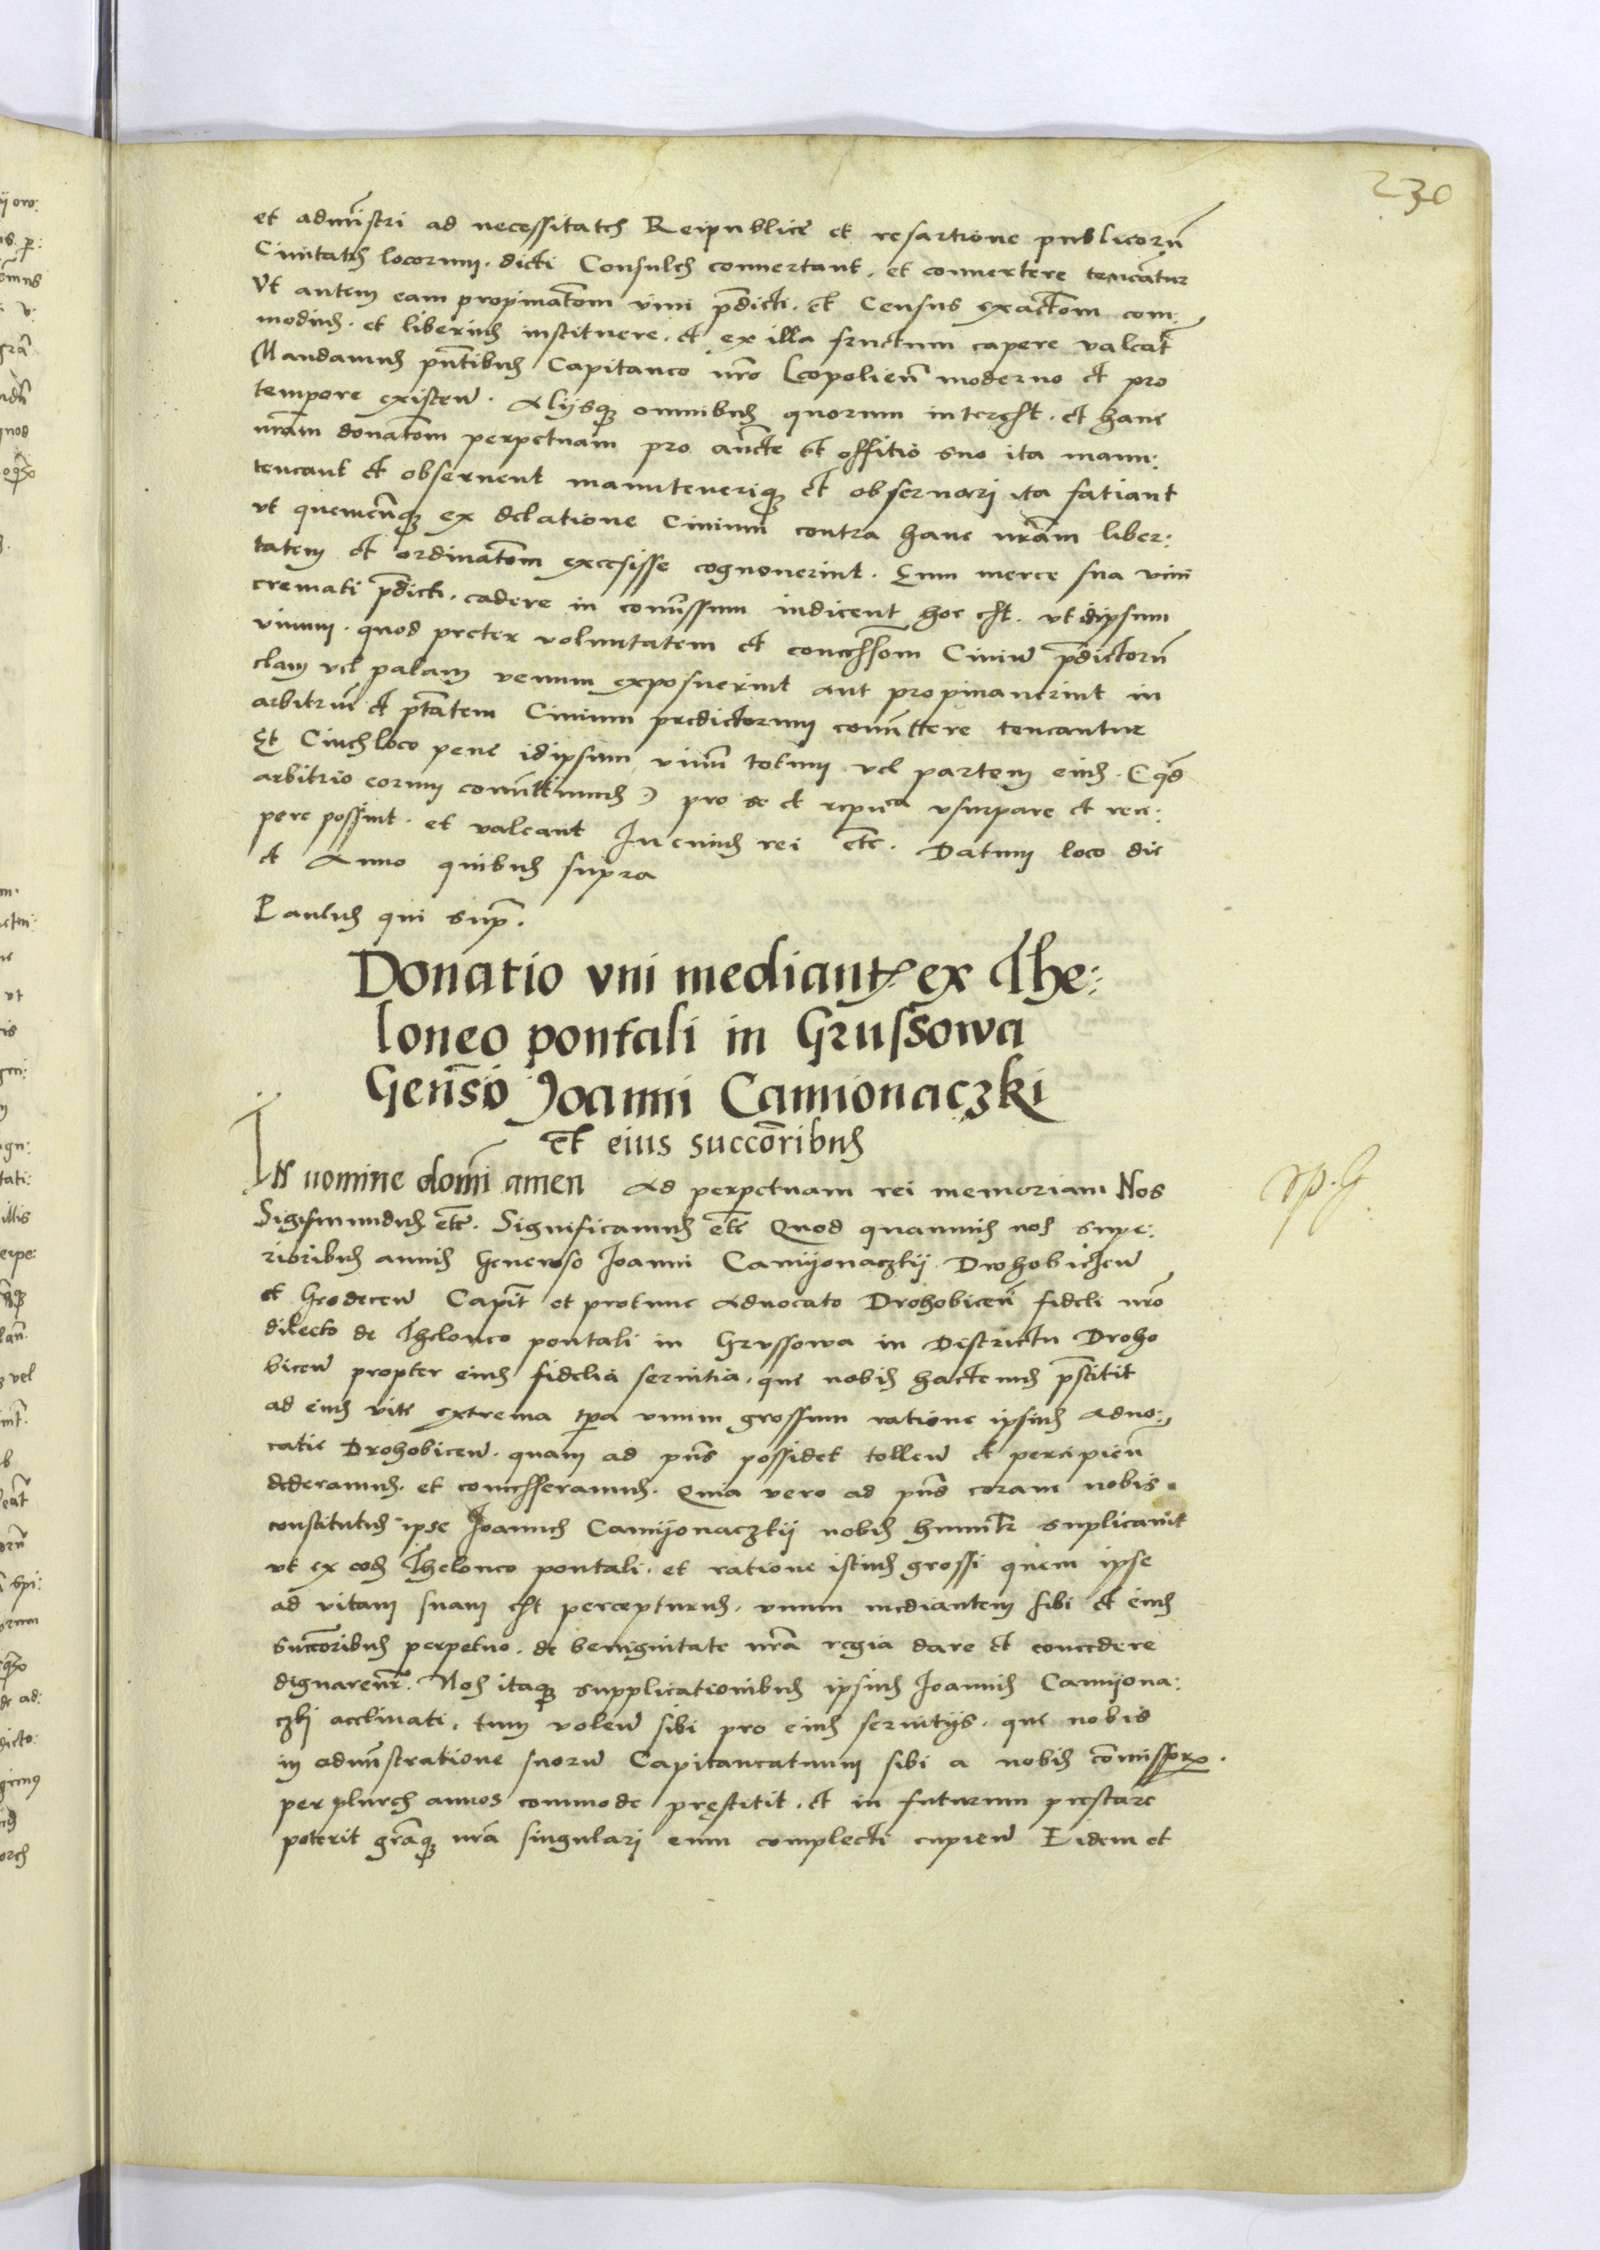 230
et admistri ad necessitates Reipublice et resartione publicorũ
Civitatis locorum. dicti Consules convertant. et convertere tencãtur
Ut autem eam propinatiõem vini pdicti. et Census exactiõem com:
modius. et liberius instituere. et ex illa fructum capere valeãt
Mandamus pñtibus Capitaneo nro Leopolieñ moderno et pro
tempore existeñ. Alijsque omnibus quorum interest. et hanc
nram donatiõem perpetuam pro aucte et offitio suo ita manu:
teneant et observent manuteneriq et observari ita fatiant
ut quemcũq ex delatione Civium contra hanc nram liber:
tatem et ordinatiõem excesisse cognoverint. Eum merce sua vini
cremati pdicti. cadere in comissum iudicent hoc est. ut idipsum
vinum. quod preter voluntatem et concessiõem Civiũ pdictorũ
clam vel palam venum exposuerint aut propinaverint in
arbitriũ et ptatem Civium predictorum comittere teneantur
Et Cives loco pene idipsum vinũ totum vel partem eius. (qd
arbitrio eorum comittimus) pro se et repuca usurpare et reci:
pere possint. et valeant In cuius rei etc. Datum loco die
et Anno quibus supra
Eaulus qui sup.
Donatio uni mediant ex The:
loneo pontali in Grussowa
Genso Joanni Camionaczki
et eius succoribus
IN nomine domi amen Ad perpetuam rei memoriam Nos
Sigismundus etc. Significamus etc Quod quamvis nos supe:
rioribus annis Generoso Joanni Camijonaczkij Drohobicheñ
et Grodeceñ Capit et protunc Advocato Drohobiceñ fideli nro
dilecto de Theloneo pontali in Grussowa in Districtu Droho
biceñ propter eius fidelia servitia. que nobis hactenus pstitit
ad eius vite extrema tpa unum grossum ratione ipsius Advo:
catie Drohobiceñ. quam ad pñs possidet tolleñ et percipieñ
dederamus. et concesseramus. Quia vero ad pñs coram nobis
constitutus ipse Joannes Camijonaczkij nobis humilr suplicavit
ut ex eodẽ Theloneo pontali. et ratione istius grossi quem ipse
ad vitam suam est percepturus. unum mediantem sibi et eius
succoribus perpetuo. de benignitate nra regia dare et concedere
dignaremr. Nos itaque supplicationibus ipsius Joannis Camijona:
czkj acclinati. tum voleñ sibi pro eius servitijs. que nobis
in admistratione suorũ Capitaneatuum sibi a nobis cõmissor.
per plures annos commode prestitit. et in futurum prestare
poterit graque nra singulari eum complecti cupieñ Eidem et